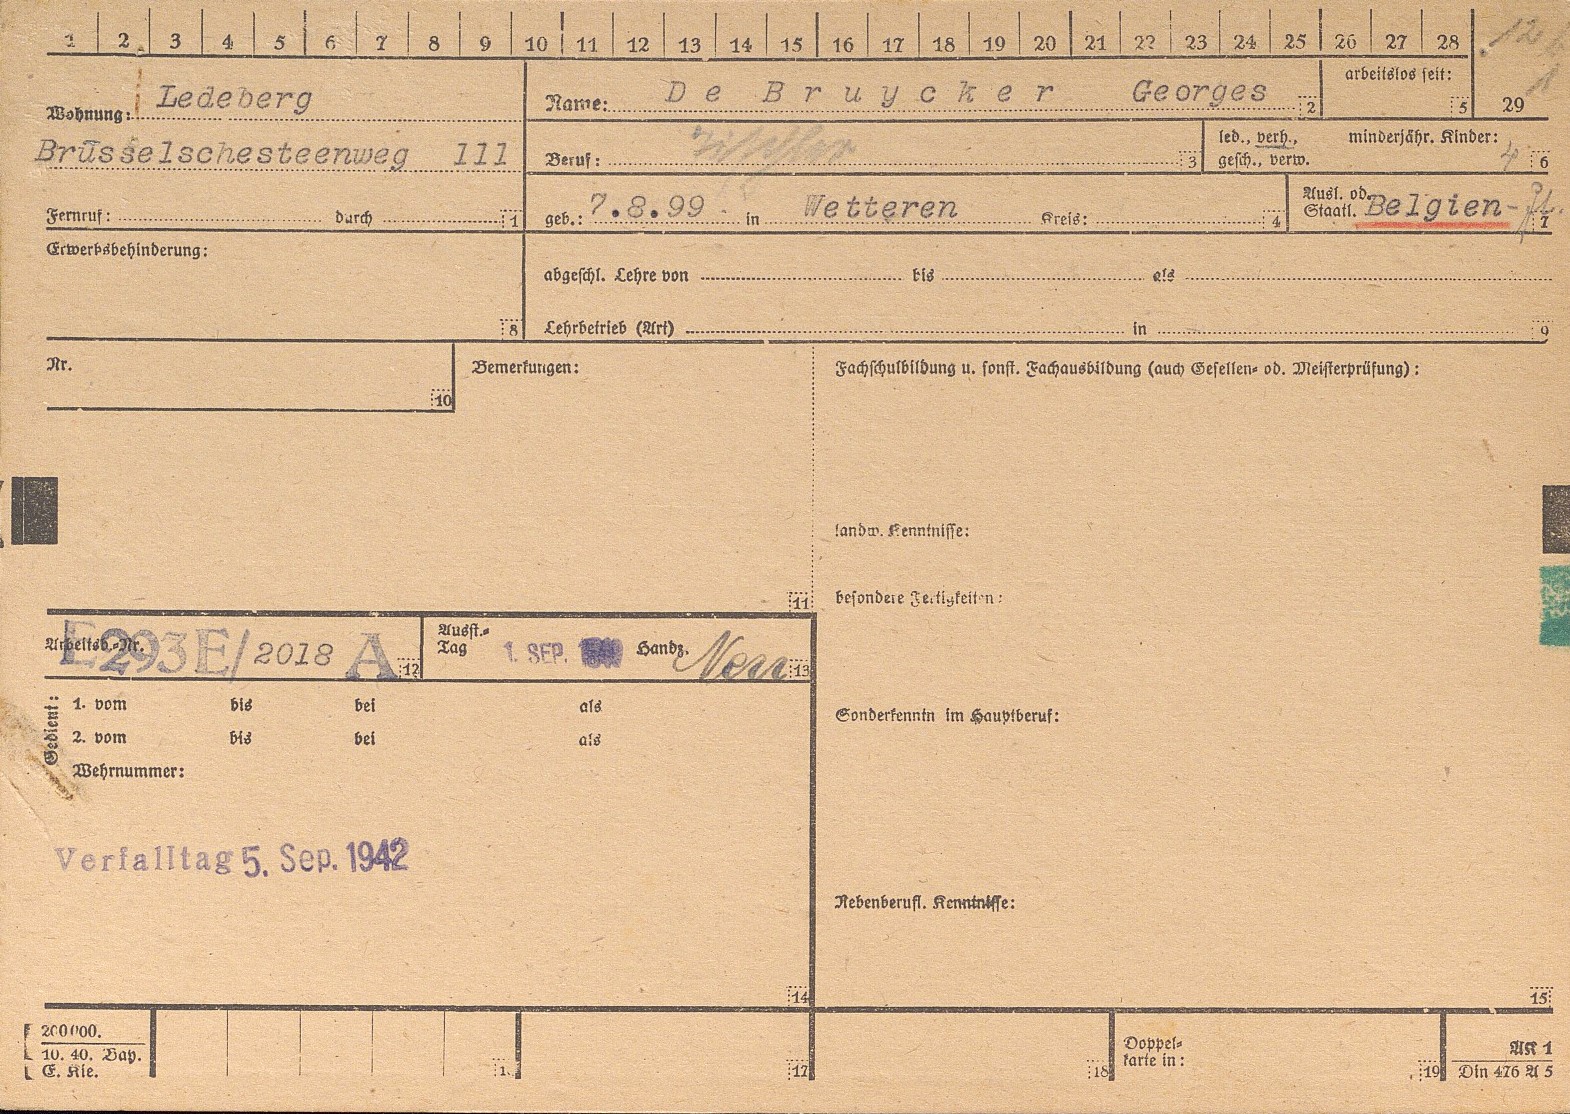 1 2 3 4 5 6 7 8 9 10 11 12 13 14 15 16 17 18 19 20 21 22 23 24 25 26 27 28
12
Wohnung: Ledeberg
Brüsselschesteenweg 111
Fernruf: durch 1
Name: De Bruycker Georges 2
arbeitslos seit: 5
29
Beruf: Tischler 3
led., verh., minderjähr. Kinder:
gesch., verw. 4 6
geb.: 7.8.99 in Wetteren Kreis: 4
Ausl. od.
Staatl. Belgien - fl. 7
Erwerbsbehinderung:
8
abgeschl. Lehre von bis als
Lehrbetrieb (Art) in 9
Nr.
10
Bemerkungen:
11
Fachschulbildung u. sonst. Fachausbildung (auch Gesellen- od. Meisterprüfung) :
landw. Kenntnisse:
besondere Fertigkeiten:
Sonderkenntn im Hauptberuf:
Nebenberufl. Kenntnisse:
15
Arbeitsb.-Nr. E293E/2018 A 12
Ausst.-
Tag 1. SEP. Handz. 13
Gedient:
1. vom bis bei als
2. vom bis bei als
Wehrnummer:
Verfalltag 5. Sep. 1942
14
200000.
10. 40. Bap.
E. Kie.
17
18
Doppel-
karte in: 19
AK 1
Din 476 A 5